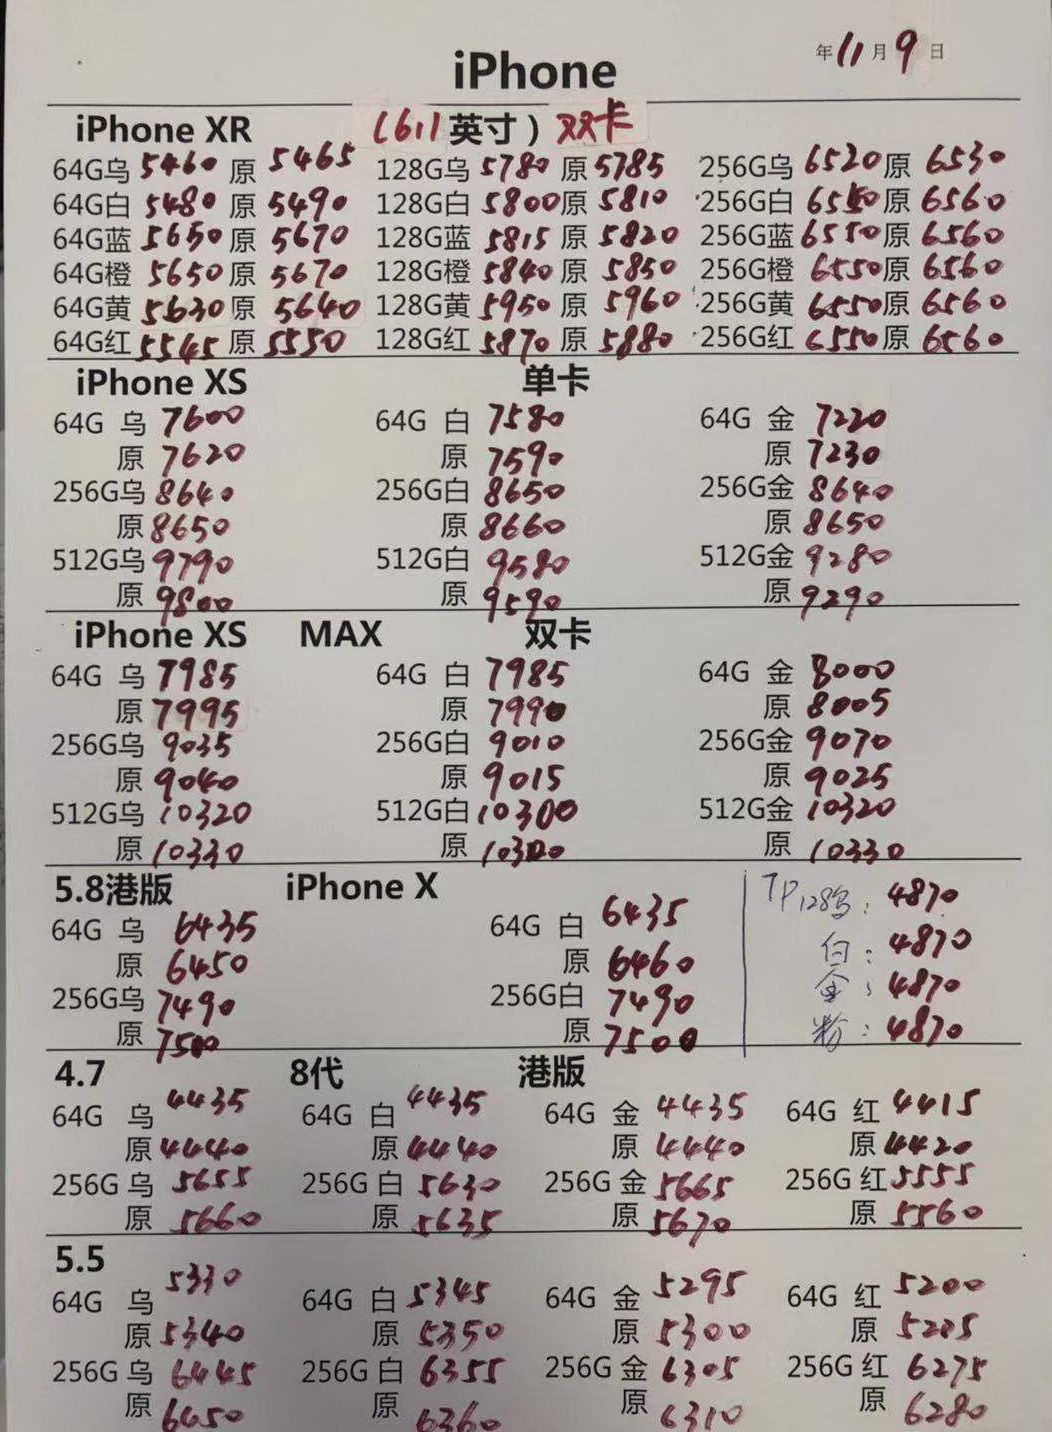 年11月9日
iPhone
iPhone XR (6.1英寸) 双卡
64G乌 5460 原 5465 128G乌 5780 原 5785 256G乌 6520 原 6530
64G白 5480 原 5490 128G白 5800 原 5810 256G白 6550 原 6560
64G蓝 5650 原 5670 128G蓝 5815 原 5820 256G蓝 6550 原 6560
64G橙 5650 原 5670 128G橙 5840 原 5850 256G橙 6550 原 6560
64G黄 5630 原 5640 128G黄 5950 原 5960 256G黄 6550 原 6560
64G红 5545 原 5550 128G红 5870 原 5880 256G红 6550 原 6560
iPhone XS 单卡
64G 乌 7600 64G 白 7580 64G 金 7220
原 7620 原 7590 原 7230
256G乌 8640 256G白 8650 256G金 8640
原 8650 原 8660 原 8650
512G乌 9790 512G白 9580 512G金 9280
原 9800 原 9590 原 9290
iPhone XS MAX 双卡
64G 乌 7985 64G 白 7985 64G 金 8000
原 7995 原 7990 原 8005
256G乌 9035 256G白 9010 256G金 9070
原 9040 原 9015 原 9025
512G乌 10320 512G白 10300 512G金 10320
原 10330 原 原 10330
5.8港版 iPhone X 7P128乌: 4870
64G 乌 6435 64G 白 6435 白: 4870
原 6450 原 6460 金: 4870
256G乌 7490 256G白 7490 粉: 4870
原 7500 原 7500
4.7 8代 港版
64G 乌 4435 64G 白 4435 64G 金 4435 64G 红 4415
原 4440 原 4440 原 4440 原 4420
256G 乌 5655 256G 白 5630 256G 金 5665 256G 红 5555
原 5660 原 5635 原 5670 原 5560
5.5
64G 乌 5330 64G 白 5345 64G 金 5295 64G 红 5200
原 5340 原 5350 原 5300 原
256G 乌 6445 256G 白 6355 256G 金 6305 256G 红 6275
原 6450 原 6360 原 6310 原 6280